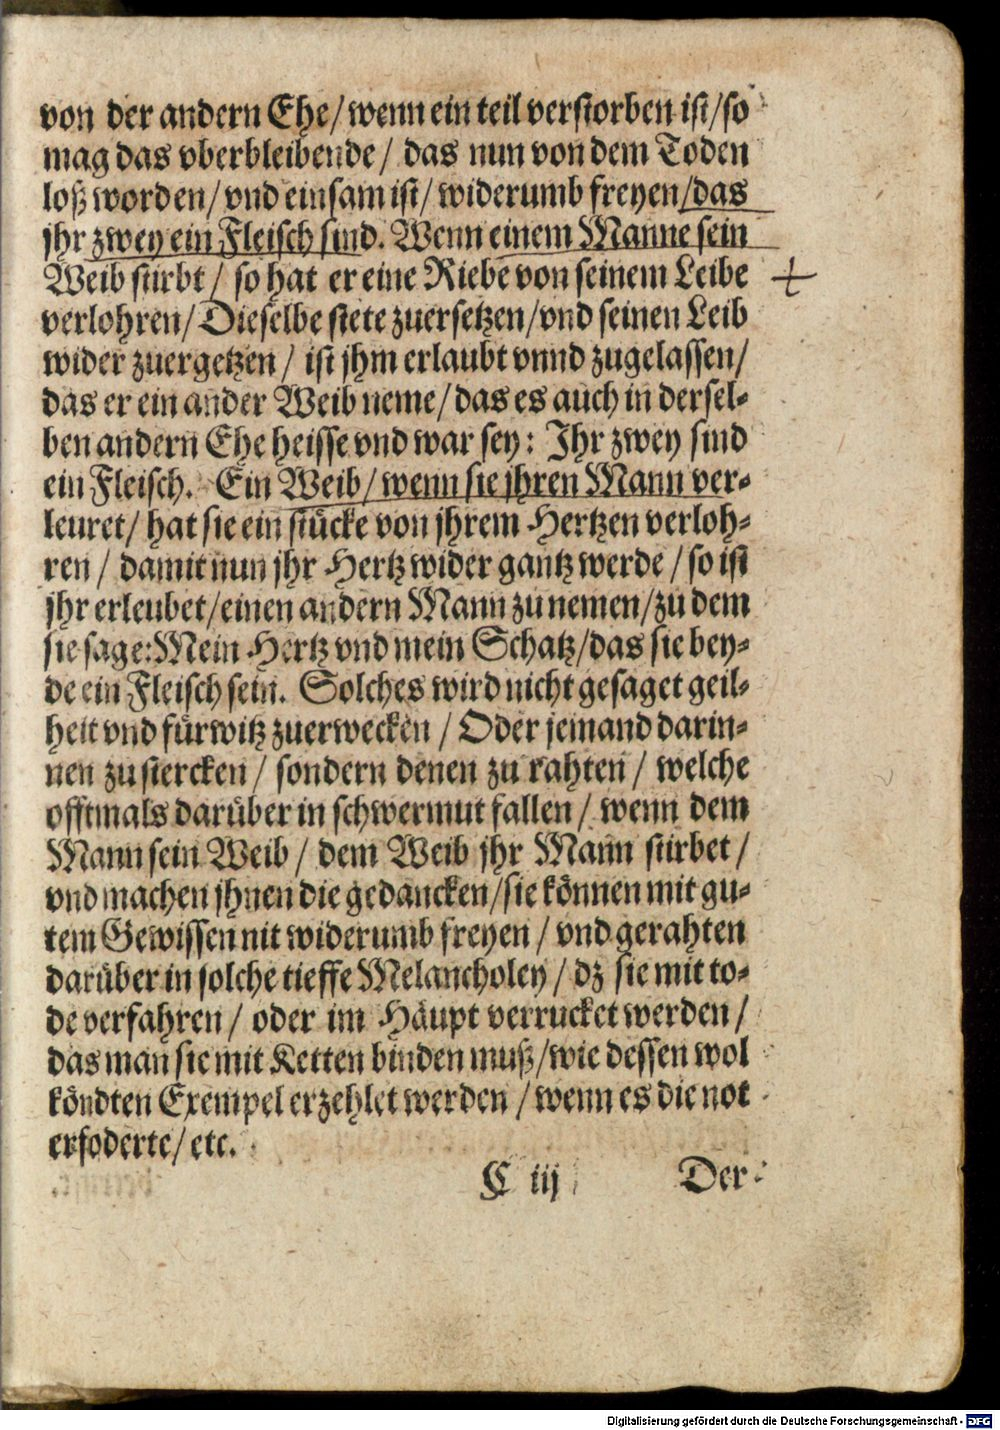 von der andern Ehe/ wenn ein teil verstorben ist/ so
mag das vberbleibende/ das nun von dem Toden
loß worden/ vnd einsam ist/ widerumb freyen/ das
jhr zwey ein Fleisch sind. Wenn einem Manne sein
Weib stirbt/ so hat er eine Riebe von seinem Leibe
verlohren/ Dieselbe stete zuersetzen/ vnd seinen Leib
wider zuergetzen/ ist jhm erlaubt vnnd zugelassen/
das er ein ander Weib neme/ das es auch in dersel-
ben andern Ehe heisse vnd war sey: Ihr zwey sind
ein Fleisch. Ein Weib/ wenn sie jhren Mann ver-
leuret/ hat sie ein stücke von jhrem Hertzen verloh-
ren/ damit nun jhr Hertz wider gantz werde/ so ist
jhr erleubet/ einen andern Mann zu nemen/ zu dem
sie sage: Mein Hertz vnd mein Schatz/ das sie bey-
de ein Fleisch sein. Solches wird nicht gesaget geil-
heit vnd fürwitz zuerwecken/ Oder jemand darin-
nen zu stercken/ sondern denen zu rahten/ welche
offtmals darüber in schwermut fallen/ wenn dem
Mann sein Weib/ dem Weib jhr Mann stirbet/
vnd machen jhnen die gedancken/ sie können mit gu-
tem Gewissen nit widerumb freyen/ vnd gerahten
darüber in solche tieffe Melancholey/ dz sie mit to-
de verfahren/ oder im Häupt verrucket werden/
das man sie mit Ketten binden muß/ wie dessen wol
köndten Exempel erzehlet werden/ wenn es die not
erfoderte/ etc.
C iij Der
Digitalisierung gefördert durch die Deutsche Forschungsgemeinschaft - DFG